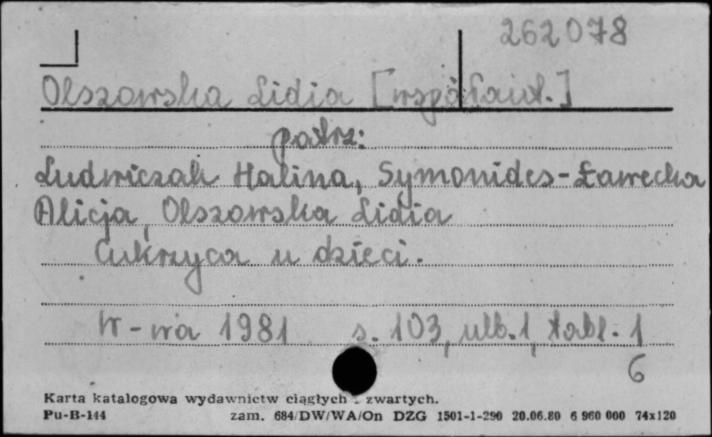 262078
Olszowska Lidia [współaut.]
patrz:
Ludwiczak Halina, Symonides-Ławecka
Alicja, Olszowska Lidia
Cukrzyca u dzieci.
W-wa 1981 s. 103, ulb. 1, tabl. 1
6
Karta katalogowa wydawnictw ciągłych - zwartych.
Pu-B-144 zam. 684/DW/WA/On DZG 1501-1-290 20.06.80 6 960 000 74x120